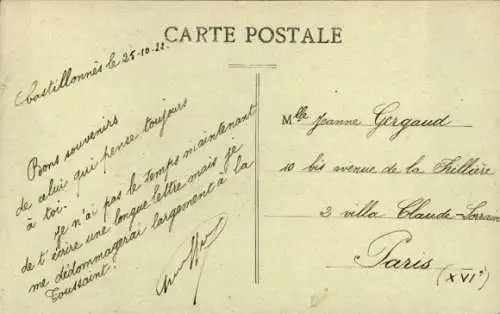 CARTE POSTALE
Castillonnès le 25-10-22.
Bons souvenirs
de celui qui pense toujours
à toi.
je n'ai pas le temps maintenant
de t'écrire une longue lettre mais je
me dédommagerai largement à la
Toussaint.
Mlle Jeanne Gergaud
10 bis avenue de la Frillière
3 villa Claude-Lorrain
Paris
(XVIe)